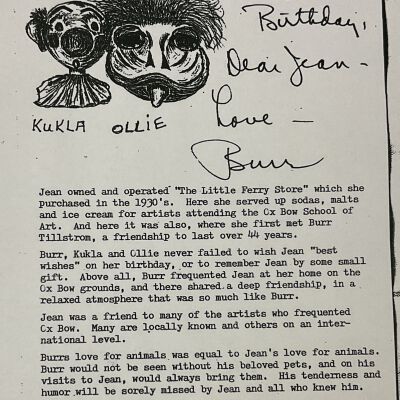 Birthday,
Dear Jean -
Love -
Burr
KUKLA OLLIE
Jean owned and operated "The Little Ferry Store" which she
purchased in the 1930's. Here she served up sodas, malts
and ice cream for artists attending the Ox Bow School of
Art. And here it was also, where she first met Burr
Tillstrom, a friendship to last over 44 years.
Burr, Kukla and Ollie never failed to wish Jean "best
wishes" on her birthday, or to remember Jean by some small
gift. Above all, Burr frequented Jean at her home on the
Ox Bow grounds, and there shared a deep friendship, in a
relaxed atmosphere that was so much like Burr.
Jean was a friend to many of the artists who frequented
Ox Bow. Many are locally known and others on an inter-
national level.
Burrs love for animals was equal to Jean's love for animals.
Burr would not be seen without his beloved pets, and on his
visits to Jean, would always bring them. His tenderness and
humor will be sorely missed by Jean and all who knew him.